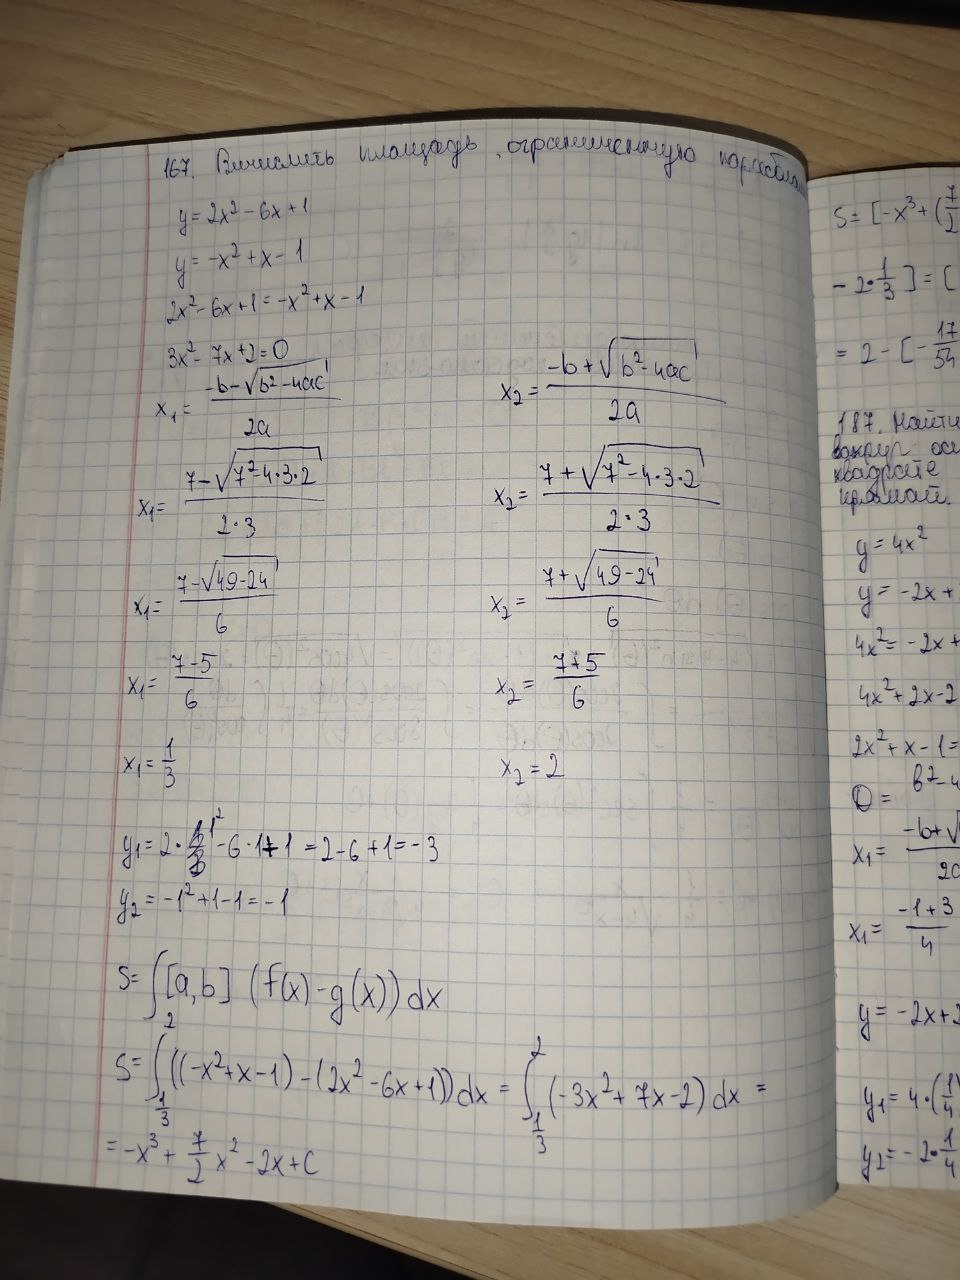 167. Вичислить площадь, ограниченную параболами
y = 2x² - 6x + 1
y = -x² + x - 1
2x² - 6x + 1 = -x² + x - 1
3x² - 7x + 2 = 0
x₁ = (-b - √(b² - 4ac)) / 2a    x₂ = (-b + √(b² - 4ac)) / 2a
x₁ = (7 - √(7² - 4·3·2)) / (2·3)    x₂ = (7 + √(7² - 4·3·2)) / (2·3)
x₁ = (7 - √(49 - 24)) / 6    x₂ = (7 + √(49 - 24)) / 6
x₁ = (7 - 5) / 6    x₂ = (7 + 5) / 6
x₁ = 1/3    x₂ = 2
y₁ = 2·1² - 6·1 + 1 = 2 - 6 + 1 = -3
y₂ = -1² + 1 - 1 = -1
S = ∫[a,b] (f(x) - g(x)) dx
S = ∫_{1/3}^{2} ((-x² + x - 1) - (2x² - 6x + 1)) dx = ∫_{1/3}^{2} (-3x² + 7x - 2) dx =
= -x³ + 7/2 x² - 2x + C
S = [-x³ + (7/2
- 2·1/3] = [
= 2 - [-17/54
187. Найти
вокруг оси
квадрате
прямой.
y = 4x²
y = -2x +
4x² = -2x +
4x² + 2x - 2
2x² + x - 1 =
D = b² - 4
x₁ = (-b + √ / 2a
x₁ = (-1 + 3) / 4
y = -2x + 2
y₁ = 4·(1/4
y₂ = -2·1/4